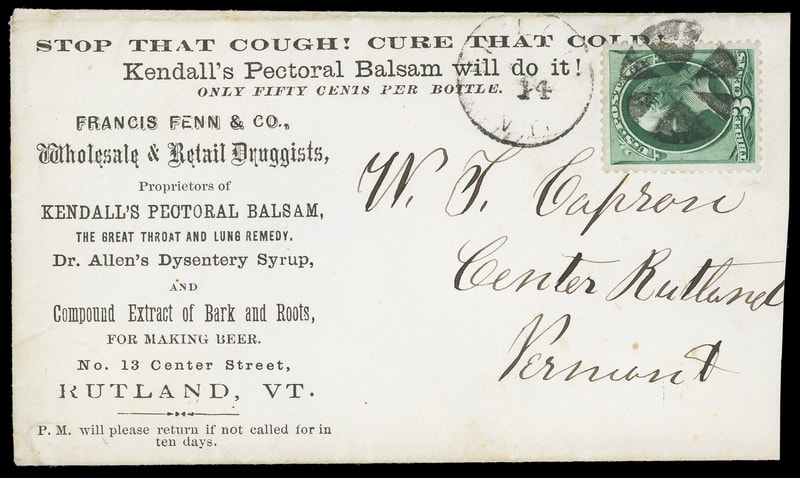 STOP THAT COUGH! CURE THAT COLD!
Kendall's Pectoral Balsam will do it!
ONLY FIFTY CENTS PER BOTTLE.
FRANCIS FENN & CO.,
Wholesale & Retail Druggists,
Proprietors of
KENDALL'S PECTORAL BALSAM,
THE GREAT THROAT AND LUNG REMEDY.
Dr. Allen's Dysentery Syrup,
AND
Compound Extract of Bark and Roots,
FOR MAKING BEER.
No. 13 Center Street,
RUTLAND, VT.
P. M. will please return if not called for in
ten days.
14
VT.
U.S. POSTAGE
3
W. F. Capron
Center Rutland
Vermont